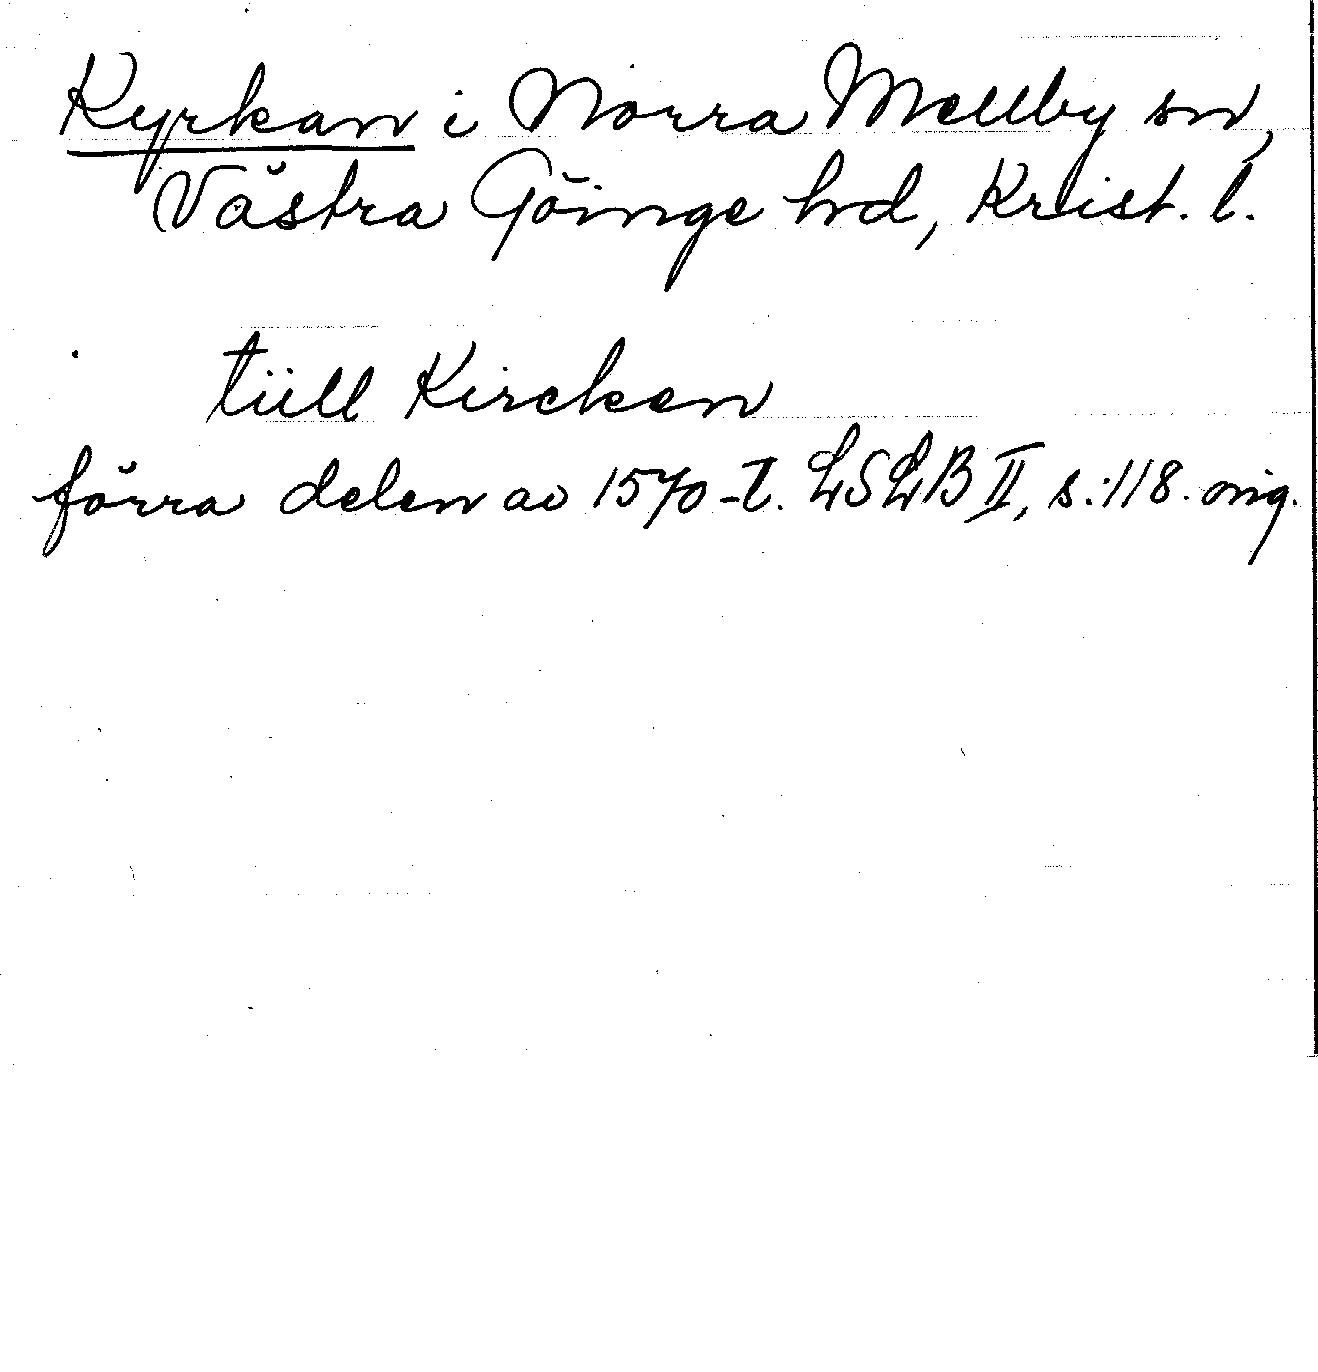 Kyrkan i Norra Mellby sn,
Västra Göinge hd, Krist. l.
tiill Kircken
förra delen av 1570-t. LSLB II, s. 118. orig.